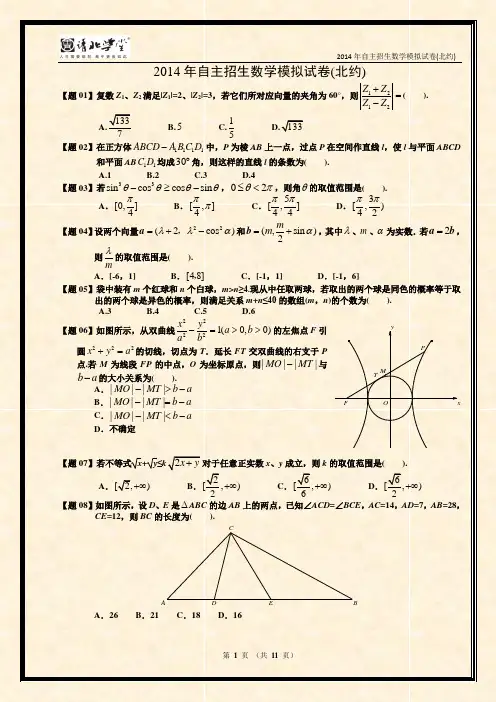 清北学堂
2014年自主招生数学模拟试卷{北约}
2014年自主招生数学模拟试卷(北约)
【题01】复数Z₁、Z₂满足|Z₁|=2、|Z₂|=3，若它们所对应向量的夹角为60°，则|(Z₁+Z₂)/(Z₁−Z₂)|=( ).
A.√133/7 B.5 C.1/5 D.√133
【题02】在正方体ABCD−A₁B₁C₁D₁中，P为棱AB上一点，过点P在空间作直线l，使l与平面ABCD
和平面ABC₁D₁均成30°角，则这样的直线l的条数为( ).
A.1 B.2 C.3 D.4
【题03】若sin³θ−cos³θ≥cosθ−sinθ，0≤θ<2π，则角θ的取值范围是( ).
A．[0,π/4] B．[π/4,π] C．[π/4,5π/4] D．[π/4,3π/2)
【题04】设两个向量a=(λ+2，λ²−cos²α)和b=(m,m/2+sinα)，其中λ、m、α为实数．若a=2b，
则λ/m的取值范围是( ).
A．[-6，1] B．[4,8] C．[-1，1] D．[-1，6]
【题05】袋中装有m个红球和n个白球，m>n≥4.现从中任取两球，若取出的两个球是同色的概率等于取
出的两个球是异色的概率，则满足关系m+n≤40的数组(m，n)的个数为( ).
A.3 B.4 C.5 D.6
【题06】如图所示，从双曲线x²/a²−y²/b²=1(a>0,b>0)的左焦点F引
圆x²+y²=a²的切线，切点为T．延长FT交双曲线的右支于P
点.若M为线段FP的中点，O为坐标原点，则|MO|−|MT|与
b−a的大小关系为( ).
A．|MO|−|MT|>b−a
B．|MO|−|MT|=b−a
C．|MO|−|MT|<b−a
D．不确定
y
P
M
T
F
O
x
【题07】若不等式√x+√y≤k√2x+y对于任意正实数x、y成立，则k的取值范围是( ).
A．[√2,+∞) B．[√2/2,+∞) C．[√6/6,+∞) D．[√6/2,+∞)
【题08】如图所示，设D、E是△ABC的边AB上的两点，已知∠ACD=∠BCE，AC=14，AD=7，AB=28，
CE=12，则BC的长度为( ).
C
A D E B
A．26 B．21 C．18 D．16
第 1 页 （共 11 页）